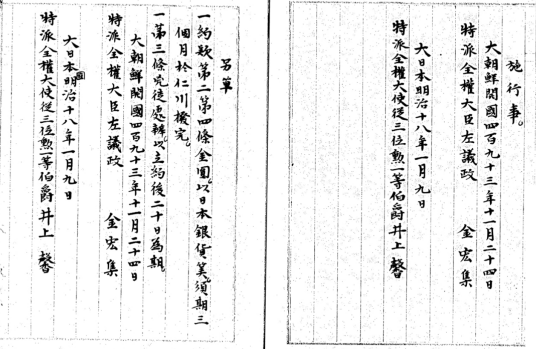 施行事。
大朝鮮開國四百九十三年十一月二十四日
特派全權大臣左議政 金宏集
大日本明治十八年一月九日
特派全權大使從三位勳一等伯爵井上馨
另單
一約款第二第四條金圓。以日本銀貨算。須期三
個月於仁川撥完。
一第三條兇徒處辦。以立約後二十日為期。
大朝鮮開國四百九十三年十一月二十四日
特派全權大臣左議政 金宏集
大日本國明治十八年一月九日
特派全權大使從三位勳一等伯爵井上馨